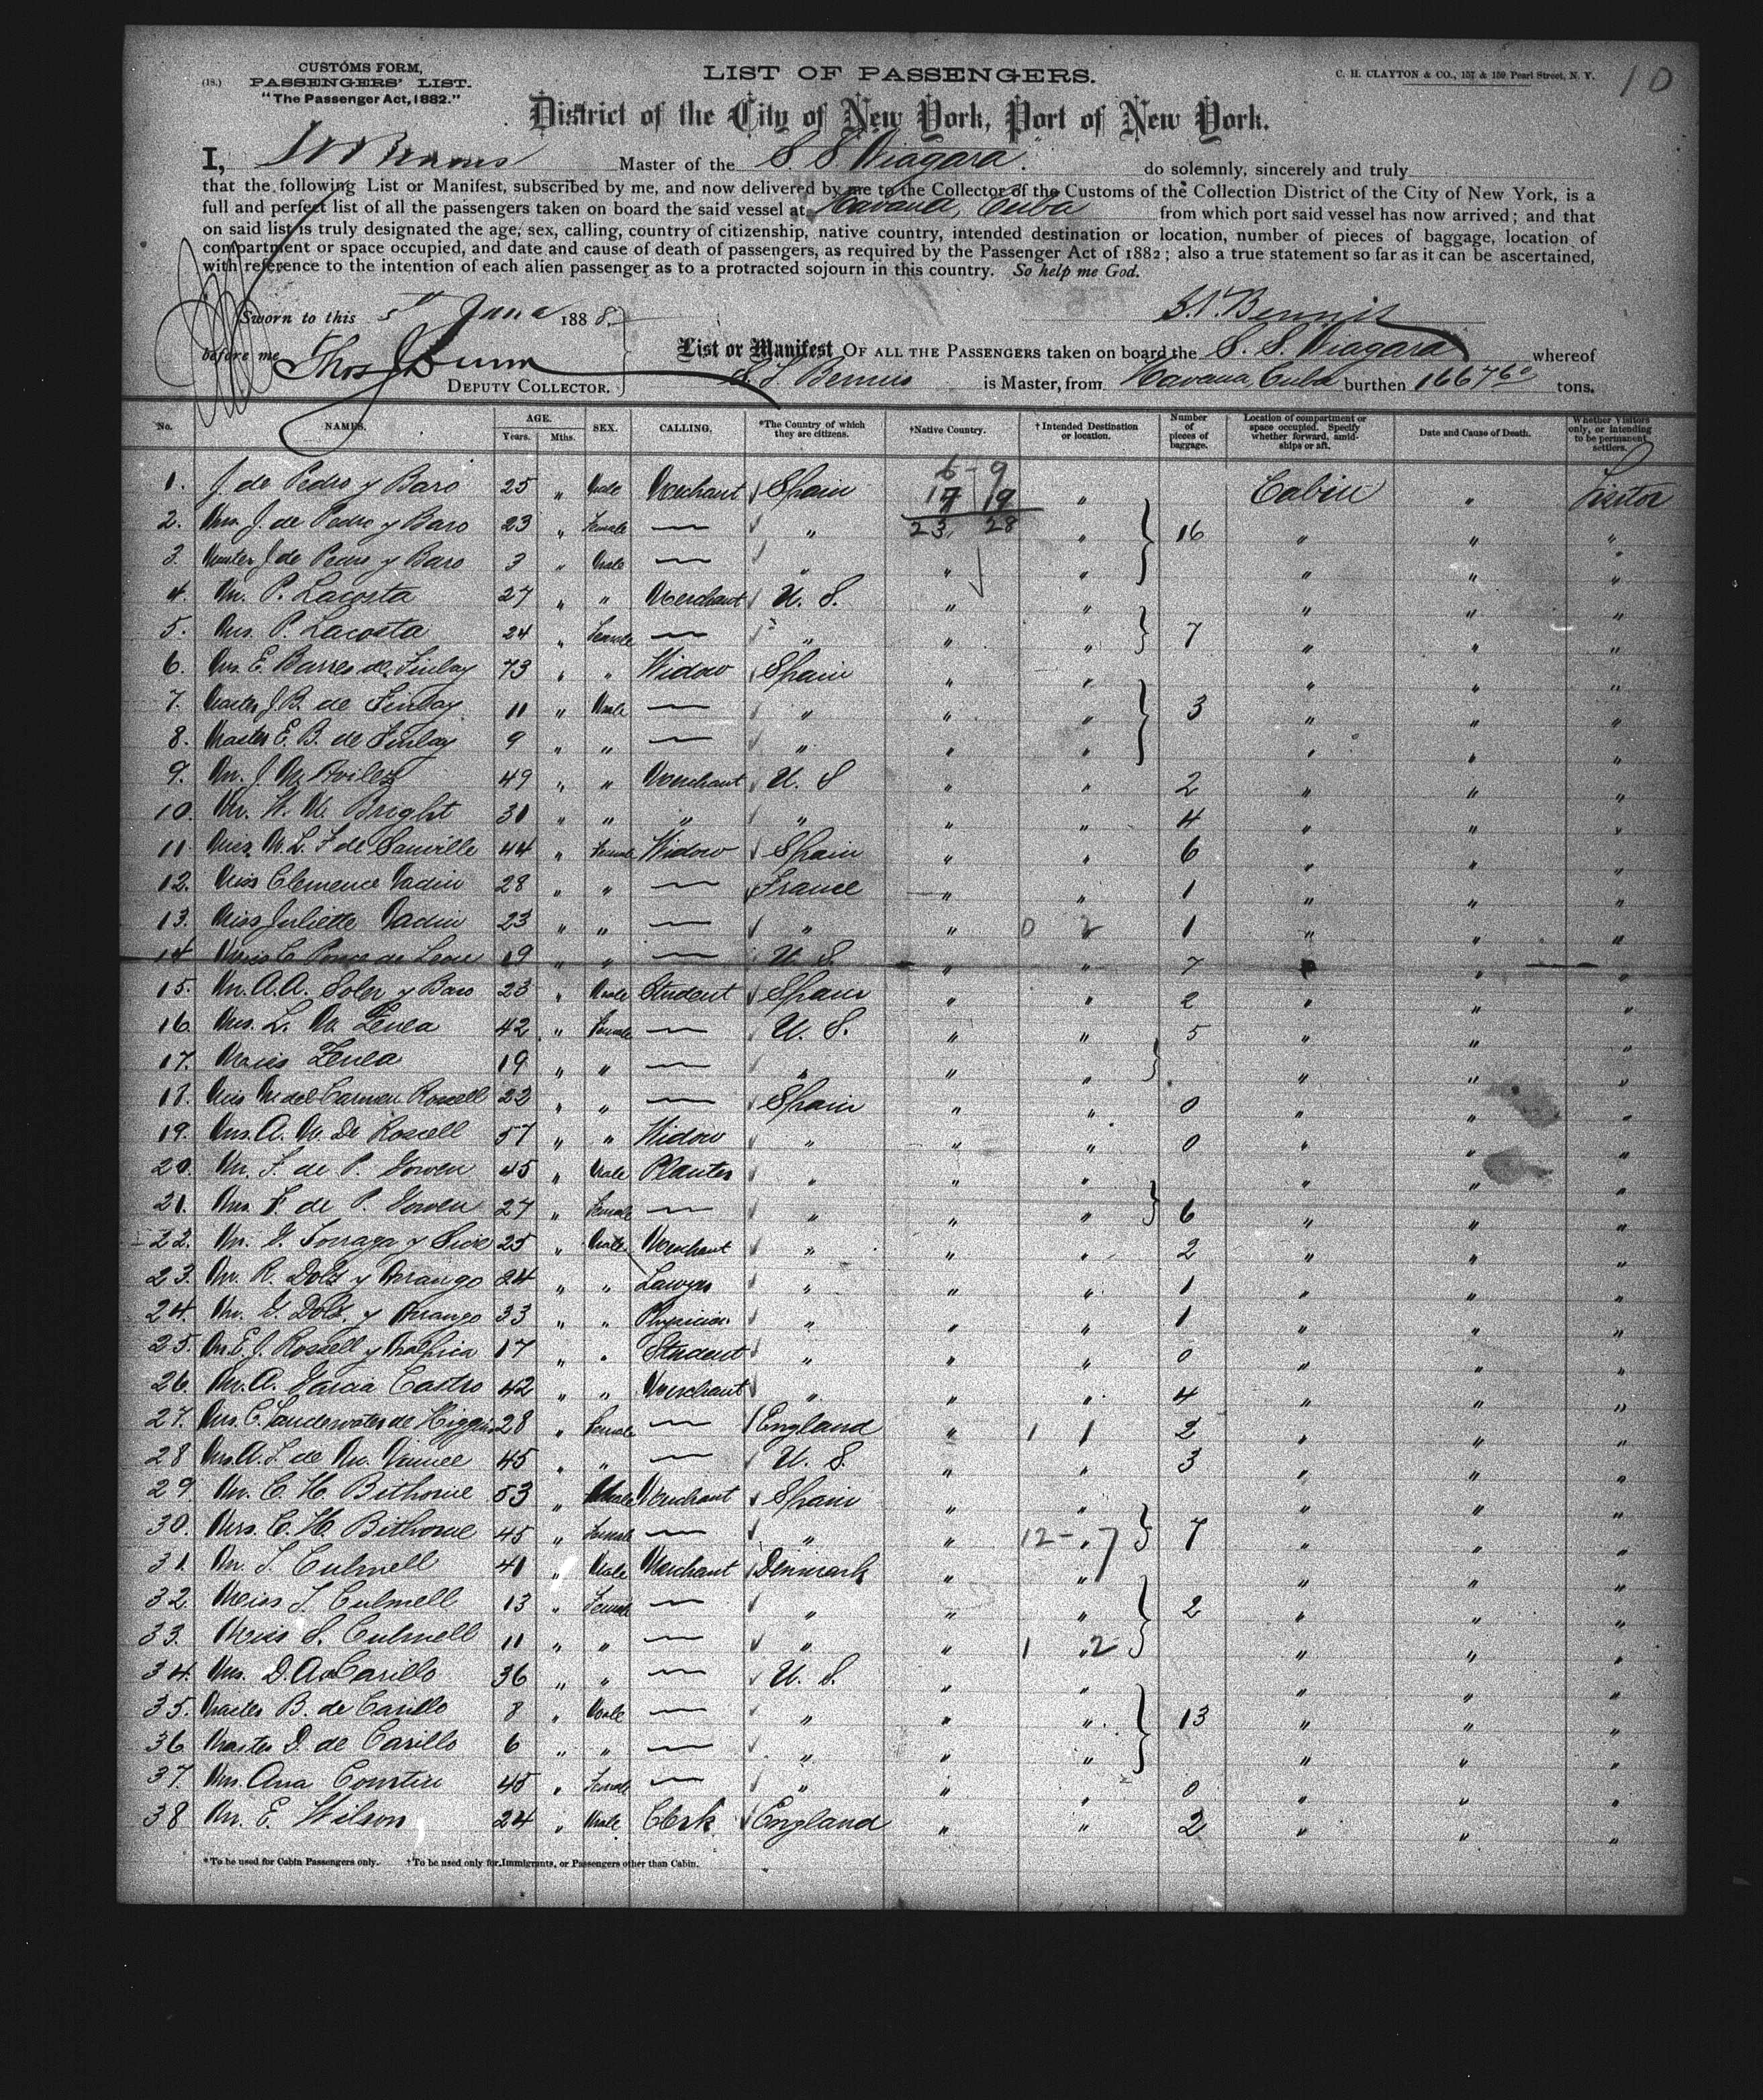 CUSTOMS FORM,
(18.) PASSENGERS' LIST.
"The Passenger Act, 1882."
LIST OF PASSENGERS.
C. H. CLAYTON & CO., 157 & 159 Pearl Street, N. Y.
10
District of the City of New York, Port of New York.
I, Master of the S S Niagara. do solemnly, sincerely and truly
that the following List or Manifest, subscribed by me, and now delivered by me to the Collector of the Customs of the Collection District of the City of New York, is a
full and perfect list of all the passengers taken on board the said vessel at Havana, Cuba from which port said vessel has now arrived; and that
on said list is truly designated the age, sex, calling, country of citizenship, native country, intended destination or location, number of pieces of baggage, location of
compartment or space occupied, and date and cause of death of passengers, as required by the Passenger Act of 1882; also a true statement so far as it can be ascertained,
with reference to the intention of each alien passenger as to a protracted sojourn in this country. So help me God.
Sworn to this 5" June 1888.
before me Thos J Dunn
DEPUTY COLLECTOR.
List or Manifest OF ALL THE PASSENGERS taken on board the S. S. Niagara whereof
is Master, from Havana, Cuba burthen 1667 60 tons.
No. NAMES. AGE. Years. Mths. SEX. CALLING. *The Country of which they are citizens. †Native Country. †Intended Destination or location. Number of pieces of baggage. Location of compartment or space occupied. Specify whether forward, amidships or aft. Date and Cause of Death. Whether Visitors only, or intending to be permanent settlers.
6 - 9
17 19
23 28
1. J. de Pedro y Baro 25 " Male Merchant Spain " Cabin " Visitor
2. Mrs J. de Pedro y Baro 23 " Female — " " 16 " " "
3. Master J. de Pedro y Baro 3 " Male — " " " " " "
4. Mr. P. Lacosta 27 " " Merchant U. S. " " " " "
5. Mrs. P. Lacosta 24 " Female — " " " 7 " " "
6. Mrs E. Barres de Finlay 73 " " Widow Spain " " " " "
7. Master J. B. de Finlay 11 " Male — " " " 3 " " "
8. Master E. B. de Finlay 9 " " — " " " " " "
9. Mr. J. M. Avilez 49 " " Merchant U. S " " 2 " " "
10. Mr. W. M. Bright 31 " " " " " " 4 " " "
11. M. L. F de Sauville 44 " Female Widow Spain " " 6 " " "
12. Miss Clemence 28 " " — France " " 1 " " "
13. Miss Juliette 23 " " — " " 0 2 1 " " "
14. Miss C Ponce de Leon 19 " " — U. S. " " 7 " "
15. Mr. A. A. Soler y Baro 23 " Male Student Spain " " 2 " " "
16. Mrs. L. M. Zenea 42 " Female — U. S. " " 5 " " "
17. Miss Zenea 19 " " — " " " " " "
18. Miss M del Carmen Rosell 22 " " — Spain " " 0 " " "
19. Mrs. A. M. De Rosell 57 " " Widow " " " 0 " " "
20. Mr. F. de P. Gowen 45 " Male Planter " " " " " "
21. Mrs. F. de P. Gowen 27 " Female — " " " 6 " " "
22. Mr. 25 " Male Merchant " " " 2 " " "
23. Mr. R. Dolz y Arango 24 " " Lawyer " " " 1 " " "
24. Mr. G. Dolz y Arango 33 " " Physician " " " 1 " " "
25. Mr. E. J. Rossell y 17 " " Student " " " 0 " " "
26. Mr. A. Garcia Castro 42 " " Merchant " " " 4 " " "
27. Mrs. C. de Higgins 28 " Female — England " 1 1 2 " " "
28 Mrs A. 45 " " — U. S. " " 3 " " "
29. Mr. C. H. Bithorne 53 " Male Merchant Spain " " " " "
30. Mrs. C. H. Bithorne 45 " Female — " " 12 - " 7 7 " " "
31. Mr. T. Culmell 41 " Male Merchant Denmark " " " " "
32 Miss T. Culmell 13 " Female — " " " 2 " " "
33. Miss S. Culmell 11 " " — " " 1 " 2 " " "
34. Mrs. D. A. Carillo 36 " " — U. S. " " " " "
35. Master B. de Carillo 8 " Male — " " " 13 " " "
36 Master D. de Carillo 6 " " — " " " " " "
37. Mrs. Ana 45 " Female — " " " 0 " " "
38 Mr. E. Wilson 24 " Male Clerk England " " 2 " " "
*To be used for Cabin Passengers only. †To be used only for Immigrants, or Passengers other than Cabin.